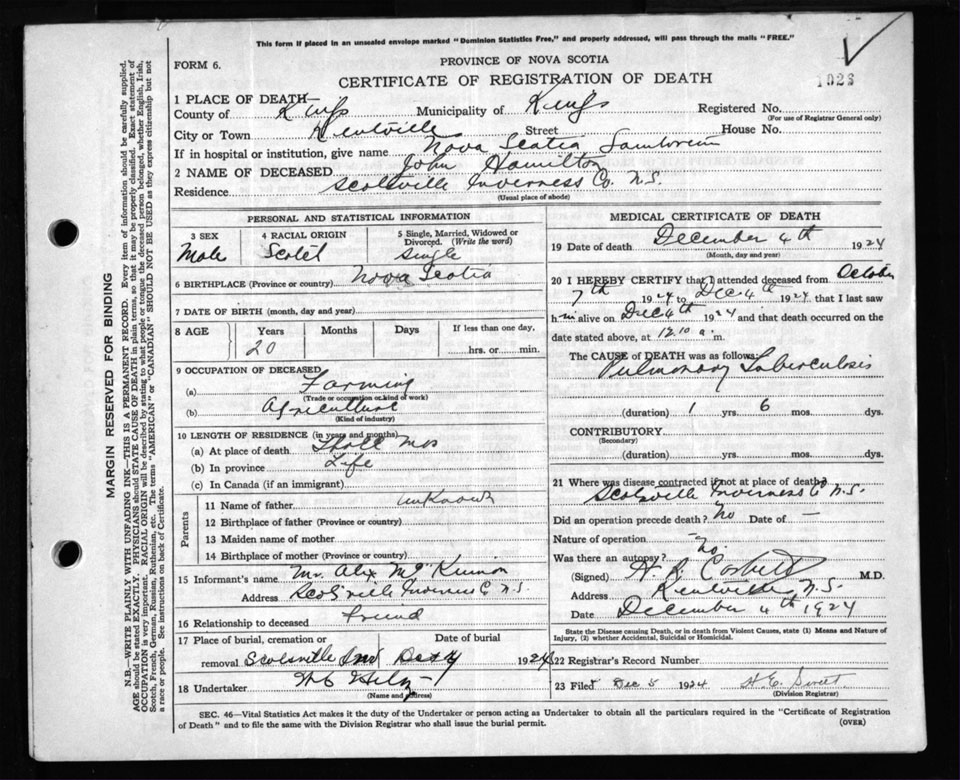 This form if placed in an unsealed envelope marked "Dominion Statistics Free," and properly addressed, will pass through the mails "FREE."
FORM 6.
PROVINCE OF NOVA SCOTIA
CERTIFICATE OF REGISTRATION OF DEATH
1 PLACE OF DEATH—
County of Kings Municipality of Kings Registered No.
(For use of Registrar General only)
City or Town Kentville Street House No.
If in hospital or institution, give name Nova Scotia
2 NAME OF DECEASED John Hamilton
Residence Scotsville Inverness Co. N.S.
(Usual place of abode)
PERSONAL AND STATISTICAL INFORMATION
3 SEX 4 RACIAL ORIGIN 5 Single, Married, Widowed or Divorced. (Write the word)
Male Single
6 BIRTHPLACE (Province or country) Nova Scotia
7 DATE OF BIRTH (month, day and year)
8 AGE Years Months Days If less than one day,
20 hrs. or min.
9 OCCUPATION OF DECEASED
(a) Farming
(Trade or occupation or kind of work)
(b) Agriculture
(Kind of industry)
10 LENGTH OF RESIDENCE (in years and months)
(a) At place of death mos
(b) In province Life
(c) In Canada (if an immigrant)
Parents
11 Name of father unknown
12 Birthplace of father (Province or country)
13 Maiden name of mother
14 Birthplace of mother (Province or country)
15 Informant's name Mr. Alex McKinnon
Address Scotsville Inverness Co N.S.
16 Relationship to deceased friend
17 Place of burial, cremation or removal Scotsville Date of burial Dec 1924
18 Undertaker
(Name and address)
MEDICAL CERTIFICATE OF DEATH
19 Date of death December 4th 1924
(Month, day and year)
20 I HEREBY CERTIFY that I attended deceased from October
7th 1924 to Dec 4th 1924 that I last saw
him alive on Dec 4th 1924 and that death occurred on the
date stated above, at 12.10 a. m.
The CAUSE of DEATH was as follows:
Pulmonary Tuberculosis
(duration) 1 yrs. 6 mos. dys.
CONTRIBUTORY
(Secondary)
(duration) yrs. mos. dys.
21 Where was disease contracted if not at place of death?
Scotsville Inverness Co N.S.
Did an operation precede death? No Date of —
Nature of operation —
Was there an autopsy? No.
(Signed) M.D.
Address Kentville, N.S.
Date December 4th 1924
State the Disease causing Death, or in death from Violent Causes, state (1) Means and Nature of Injury, (2) whether Accidental, Suicidal or Homicidal.
22 Registrar's Record Number
23 Filed Dec 5 1924
(Division Registrar)
SEC. 46—Vital Statistics Act makes it the duty of the Undertaker or person acting as Undertaker to obtain all the particulars required in the "Certificate of Registration
of Death" and to file the same with the Division Registrar who shall issue the burial permit.
(OVER)
MARGIN RESERVED FOR BINDING
N.B.—WRITE PLAINLY WITH UNFADING INK—THIS IS A PERMANENT RECORD. Every item of information should be carefully supplied.
AGE should be stated EXACTLY. PHYSICIANS should STATE CAUSE OF DEATH in plain terms, so that it may be properly classified. Exact statement of
OCCUPATION is very important. RACIAL ORIGIN will be described by stating to what people or tongue the deceased person belonged, whether English, Irish,
Scotch, French, German, Russian, Ruthenian, etc. The terms "AMERICAN" or "CANADIAN" SHOULD NOT BE USED as they express citizenship but not
a race or people. See instructions on back of Certificate.